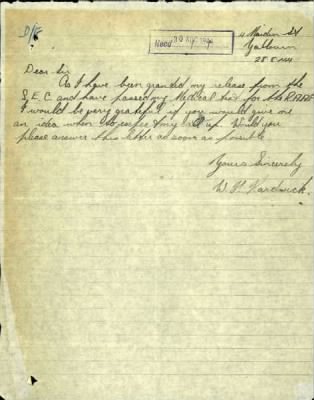 D/E
4 Maiden St
Goulburn
28.8.44
Recd 30 AUG 1944
Dear Sir
As I have been granted my release from the
S.E.C. and have passed my Medical test for the RAAF
I would be very grateful if you would give me
an idea when to expect my call up. Would you
please answer this letter as soon as possible
Yours Sincerely
W. Hardwick.